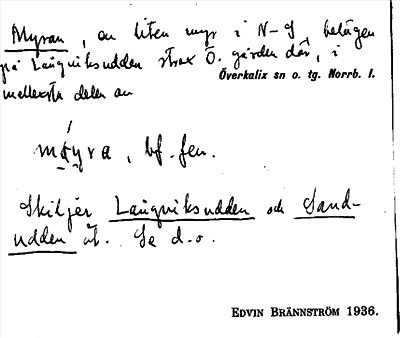 Myran, en liten myr i N-S, belägen
på Långviksudden strax Ö. gården där, i
Överkalix sn o. tg. Norrb. l.
mellersta delen av
mɑ́yra, bf. fen.
Skiljer Långviksudden och Sand-
udden åt. Se d.o.
EDVIN BRÄNNSTRÖM 1936.